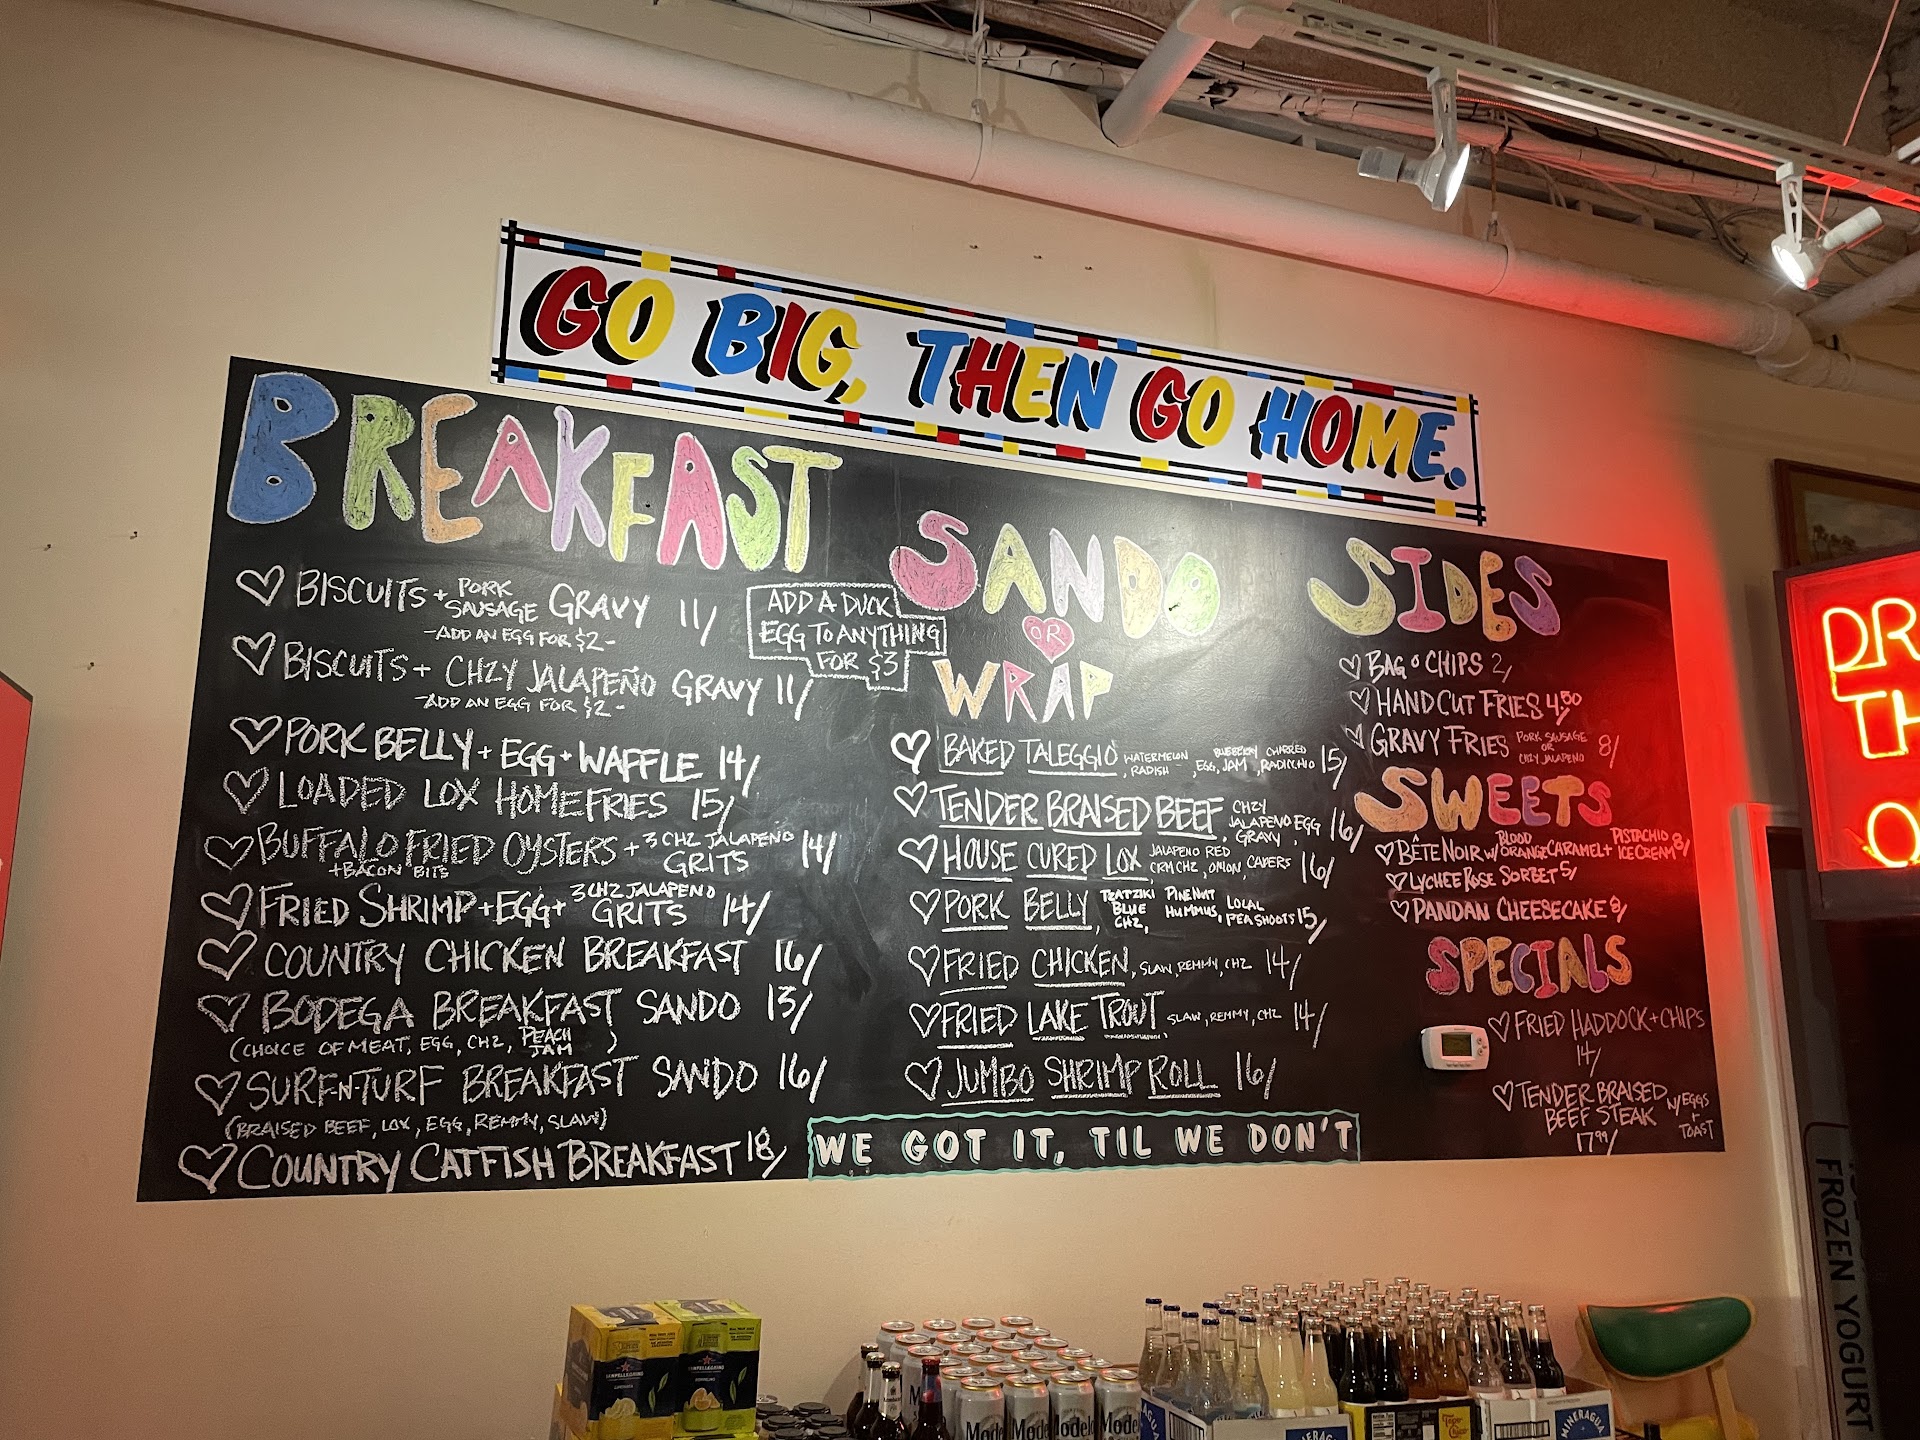 GO BIG, THEN GO HOME.
BREAKFAST
BISCUITS + PORK SAUSAGE GRAVY 11/
-ADD AN EGG FOR $2-
BISCUITS + CHZY JALAPEÑO GRAVY 11/
-ADD AN EGG FOR $2-
PORK BELLY + EGG + WAFFLE 14/
LOADED LOX HOMEFRIES 15/
BUFFALO FRIED OYSTERS + 3 CHZ JALAPENO GRITS 14/
+BACON BITS
FRIED SHRIMP + EGG + 3 CHZ JALAPENO GRITS 14/
COUNTRY CHICKEN BREAKFAST 16/
BODEGA BREAKFAST SANDO 13/
(CHOICE OF MEAT, EGG, CHZ, PEACH JAM)
SURF-N-TURF BREAKFAST SANDO 16/
(BRAISED BEEF, LOX, EGG, REMMY, SLAW)
COUNTRY CATFISH BREAKFAST 18/
ADD A DUCK
EGG TO ANYTHING
FOR $3
SANDO
OR
WRAP
BAKED TALEGGIO, WATERMELON RADISH, EGG, BLUEBERRY JAM, CHARRED RADICCHIO 15/
TENDER BRAISED BEEF, CHZY JALAPENO GRAVY, EGG 16/
HOUSE CURED LOX JALAPENO CRM CHZ, RED ONION, CAPERS 16/
PORK BELLY, TZATZIKI BLUE CHZ, PINENUT HUMMUS, LOCAL PEA SHOOTS 15/
FRIED CHICKEN, SLAW, REMMY, CHZ 14/
FRIED LAKE TROUT, SLAW, REMMY, CHZ 14/
JUMBO SHRIMP ROLL 16/
WE GOT IT, TIL WE DON'T
SIDES
BAG O CHIPS 2/
HAND CUT FRIES 4.50
GRAVY FRIES PORK SAUSAGE OR CHZY JALAPENO 8/
SWEETS
BÊTE NOIR W/ BLOOD ORANGE CARAMEL + PISTACHIO ICE CREAM 8/
LYCHEE ROSE SORBET 5/
PANDAN CHEESECAKE 8/
SPECIALS
FRIED HADDOCK + CHIPS
14/
TENDER BRAISED
BEEF STEAK W/EGGS + TOAST
17.99/
DR
TH
O
FROZEN YOGURT
SANPELLEGRINO
Modelo
Mode
Topo Chico
MINERAGUA